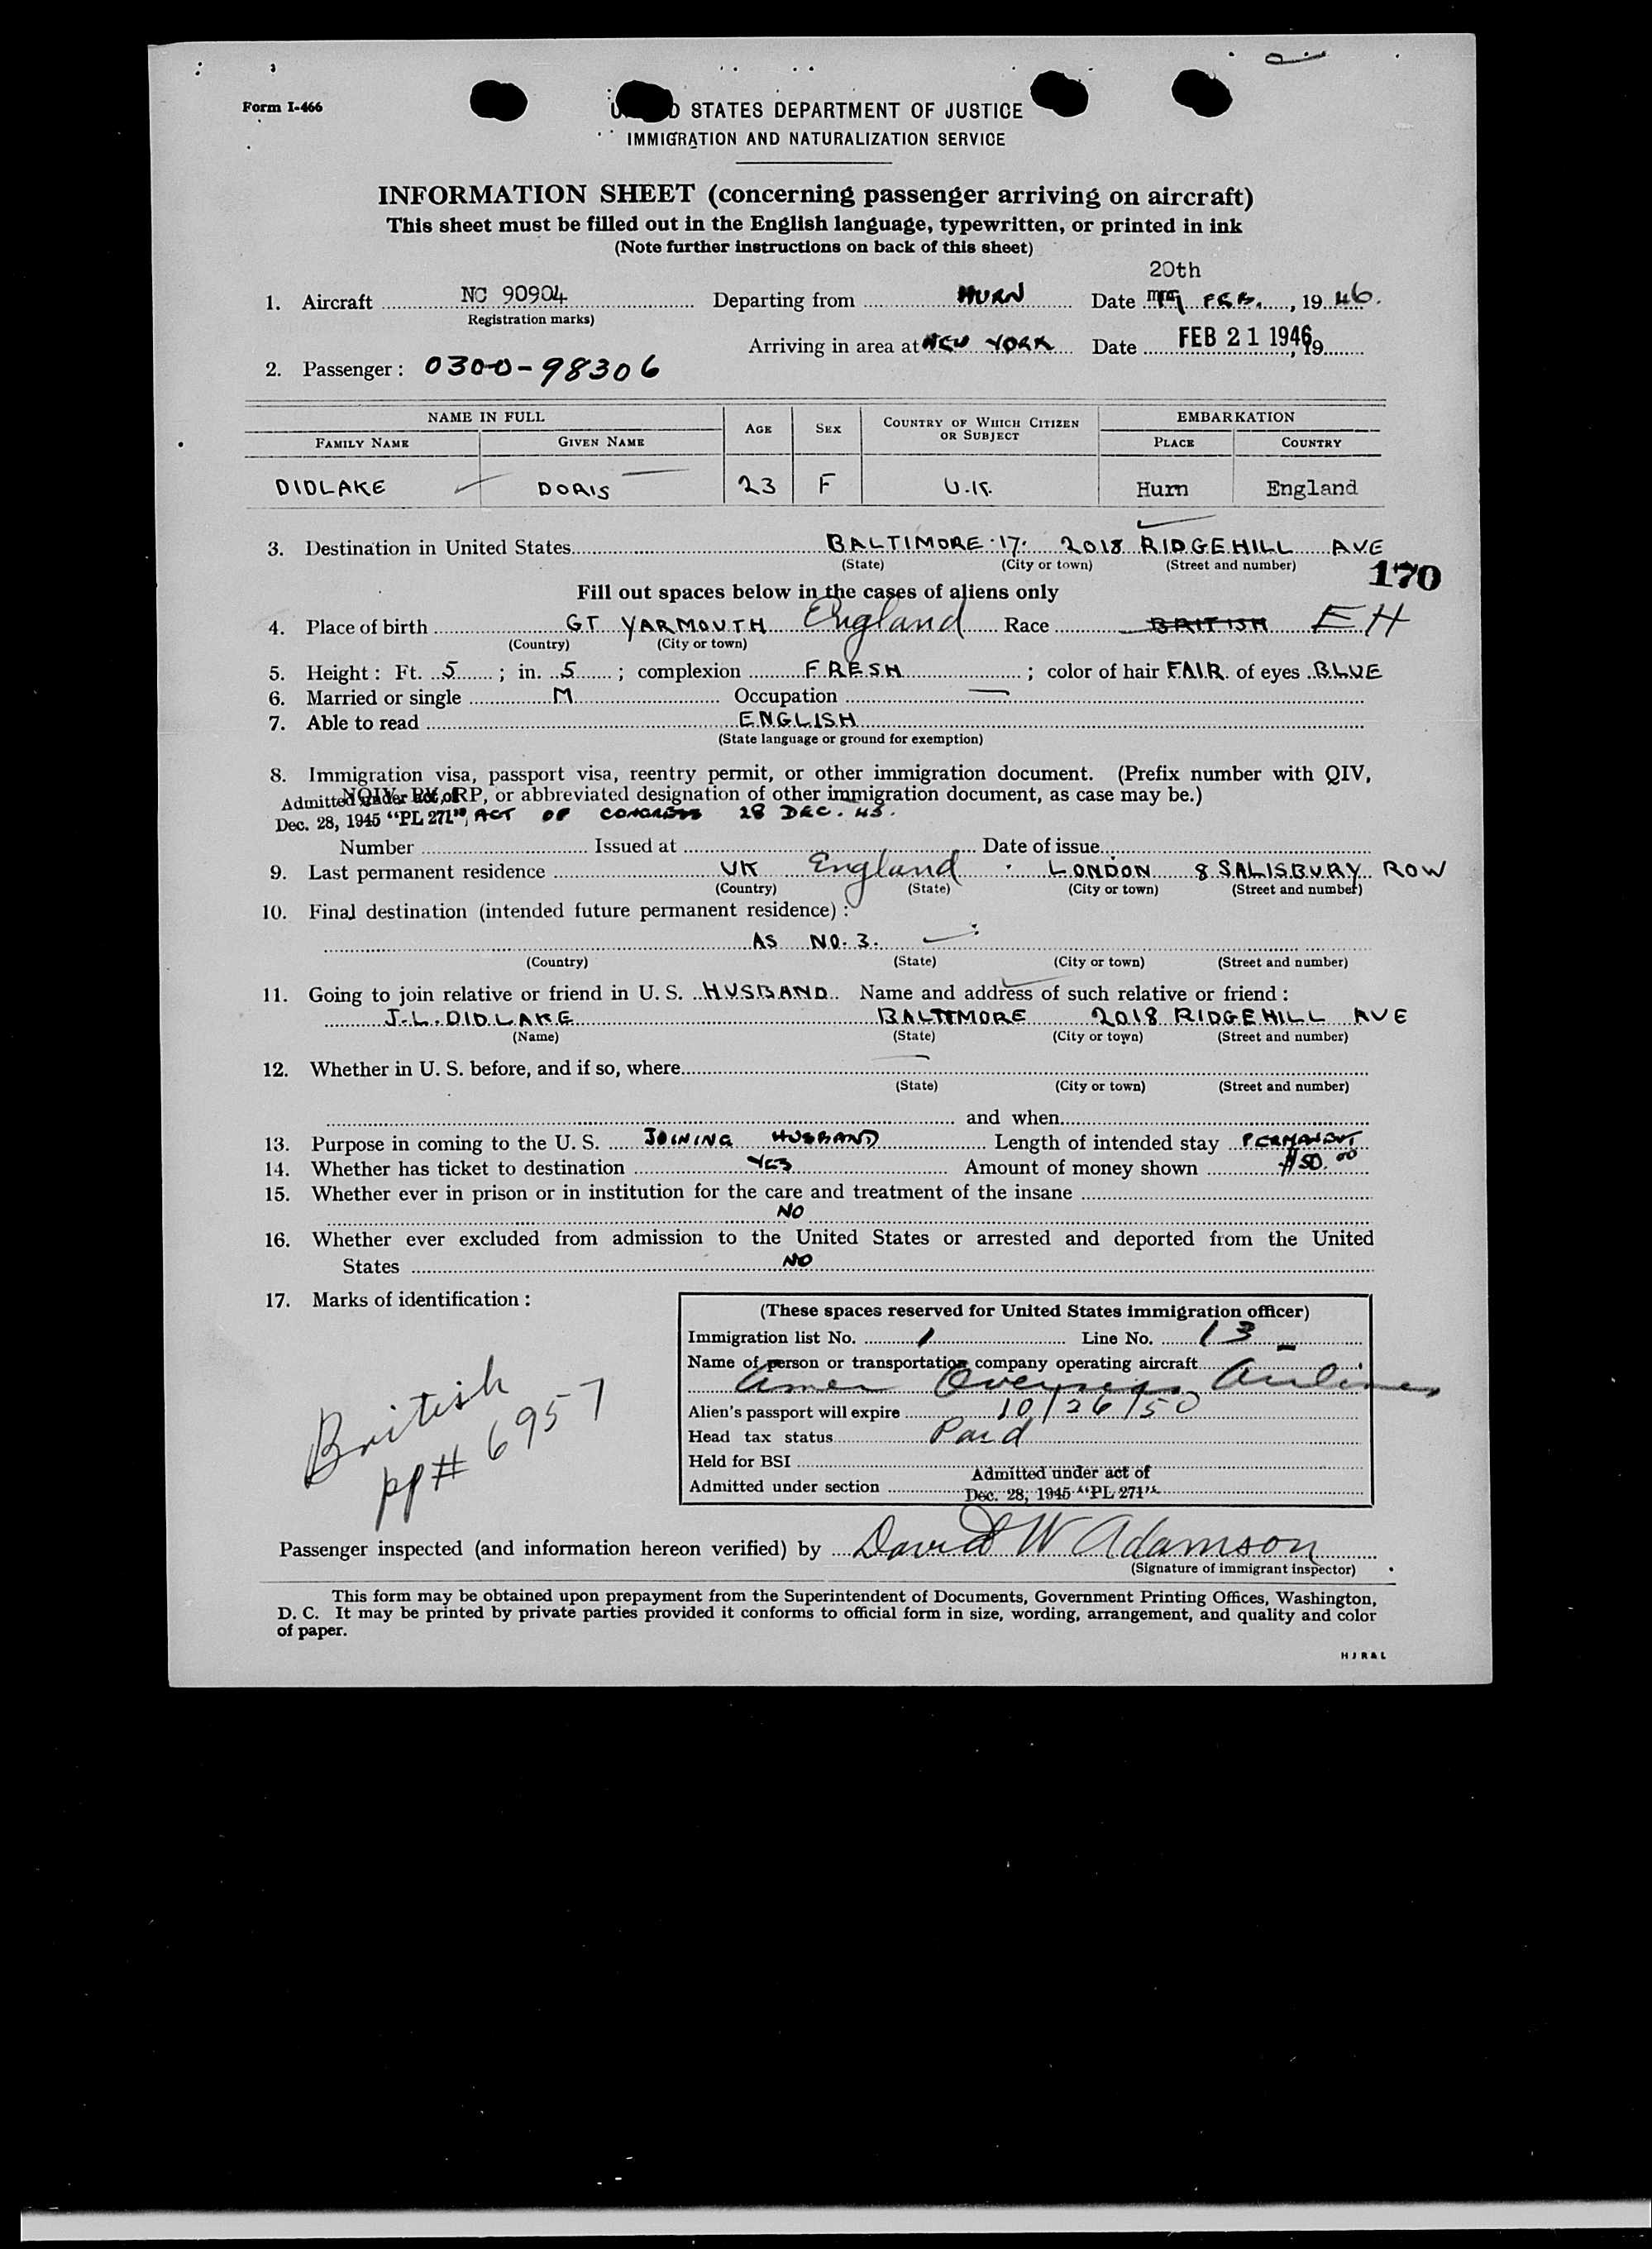 Form I-466
STATES DEPARTMENT OF JUSTICE
IMMIGRATION AND NATURALIZATION SERVICE
INFORMATION SHEET (concerning passenger arriving on aircraft)
This sheet must be filled out in the English language, typewritten, or printed in ink
(Note further instructions on back of this sheet)
20th
1. Aircraft NC 90904 Departing from HURN Date FEB. , 19 46.
(Registration marks)
Arriving in area at NEW YORK Date FEB 21 1946 , 19
2. Passenger : 0300-98306
NAME IN FULL AGE SEX COUNTRY OF WHICH CITIZEN OR SUBJECT EMBARKATION
FAMILY NAME GIVEN NAME PLACE COUNTRY
DIDLAKE DORIS 23 F U.K. Hurn England
3. Destination in United States BALTIMORE 17. 2018 RIDGEHILL AVE
(State) (City or town) (Street and number)
170
Fill out spaces below in the cases of aliens only
4. Place of birth GT YARMOUTH England Race BRITISH EH
(Country) (City or town)
5. Height : Ft. 5 ; in. 5 ; complexion FRESH ; color of hair FAIR of eyes BLUE
6. Married or single M Occupation —
7. Able to read ENGLISH
(State language or ground for exemption)
8. Immigration visa, passport visa, reentry permit, or other immigration document. (Prefix number with QIV,
NQIV, PV, or RP, or abbreviated designation of other immigration document, as case may be.)
Admitted under act of
Dec. 28, 1945 "PL 271" ACT OF CONGRESS 28 DEC. 45.
Number Issued at Date of issue
9. Last permanent residence UK England LONDON 8 SALISBURY ROW
(Country) (State) (City or town) (Street and number)
10. Final destination (intended future permanent residence) :
AS NO. 3.
(Country) (State) (City or town) (Street and number)
11. Going to join relative or friend in U. S. HUSBAND Name and address of such relative or friend :
J. L. DIDLAKE BALTIMORE 2018 RIDGEHILL AVE
(Name) (State) (City or town) (Street and number)
12. Whether in U. S. before, and if so, where —
(State) (City or town) (Street and number)
and when
13. Purpose in coming to the U. S. JOINING HUSBAND Length of intended stay PERMANENT
14. Whether has ticket to destination YES Amount of money shown $50.00
15. Whether ever in prison or in institution for the care and treatment of the insane
NO
16. Whether ever excluded from admission to the United States or arrested and deported from the United
States NO
17. Marks of identification :
British
pp# 6957
(These spaces reserved for United States immigration officer)
Immigration list No. 1 Line No. 13
Name of person or transportation company operating aircraft
Amer Overseas Airlines
Alien's passport will expire 10/26/50
Head tax status Paid
Held for BSI
Admitted under section Admitted under act of
Dec. 28, 1945 "PL 271"
Passenger inspected (and information hereon verified) by David W Adamson
(Signature of immigrant inspector)
This form may be obtained upon prepayment from the Superintendent of Documents, Government Printing Offices, Washington,
D. C. It may be printed by private parties provided it conforms to official form in size, wording, arrangement, and quality and color
of paper.
HJR&L